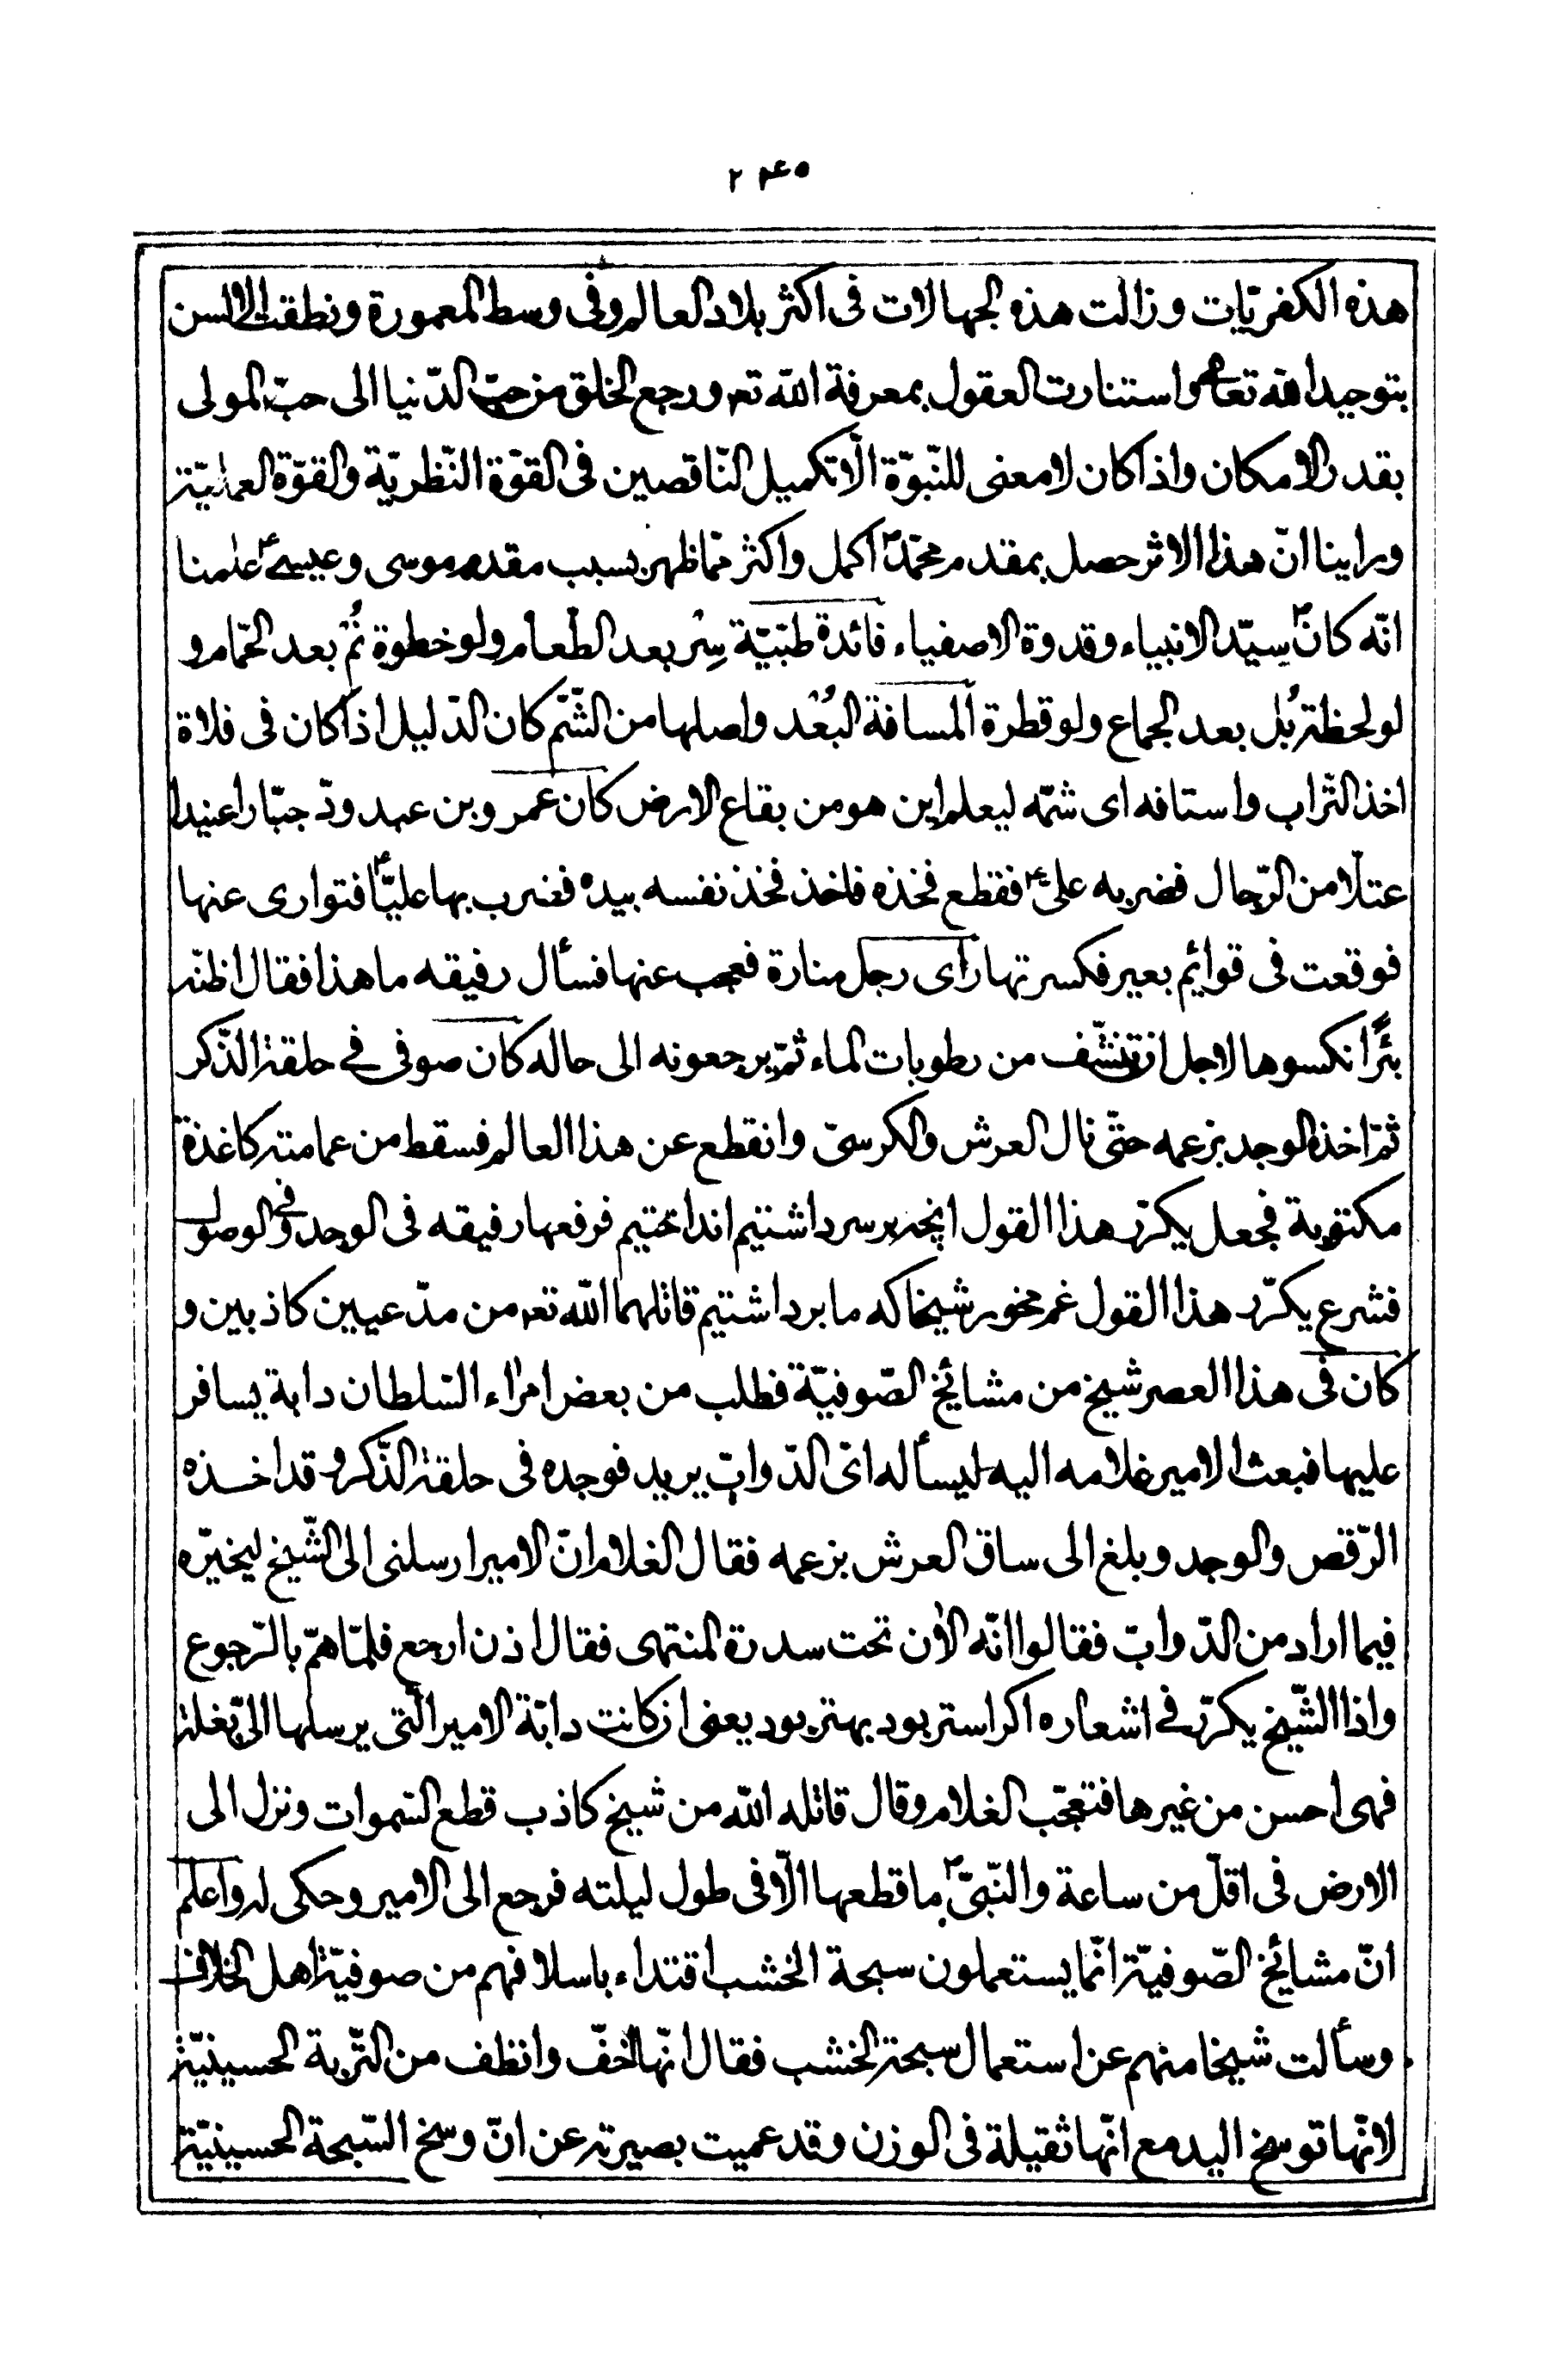 ۲۴۵
هذه الكفريّات وزالت هذه الجهالات فى اكثر بلاد العالم وفى وسط المعمورة ونطقت الالسن
بتوحيد الله تعالى واستنارت العقول بمعرفة الله تعـ ورجع الخلق من حبّ الدّنيا الى حبّ المولى
بقدر الامكان واذا كان لا معنى للنّبوّة الّا تكميل النّاقصين فى القوّة النّظريّة والقوّة العمليّة
وراينا انّ هذا الاثر حصل بمقدم محمّد ص اكمل واكثر ممّا ظهر بسبب مقدم موسى وعيسى ع علمنا
انّه كان ص سيّد الانبياء وقدوة الاصفياء فائدة طبّيّة سِرْ بعد الطّعام ولو خطوة نُمْ بعد الحمّام و
لو لحظة بُل بعد الجماع ولو قطرة المسافة البُعْد واصلها من الشّمّ كان الدّليل اذا كان فى فلاة
اخذ التّراب واستافه اى شمّه ليعلم اين هو من بقاع الارض كان عمرو بن عبدودّ جبّارا عنيدا
عتلّا من الرّجال فضربه علىّ ع فقطع فخذه فاخذ فخذ نفسه بيده فضرب بها عليّا ع فتوارى عنها
فوقعت فى قوائم بعير فكسرتها راى رجل منارة فعجب عنها فسأل رفيقه ما هذا فقال اظنّه
بئرًا نكسوها لاجل ان تنشّف من رطوبات الماء ثمّ يرجعونه الى حاله كان صوفى فى حلقة الذّكر
ثمّ اخذه الوجد بزعمه حتّى نال العرش والكرسىّ وانقطع عن هذا العالم فسقط من عمامته كاغذة
مكتوبة فجعل يكرّر هذا القول انچه بر سر داشتيم انداختيم فرفعها رفيقه فى الوجد وفى الوصول
فشرع يكرّر هذا القول غم مخور شيخا كه ما برداشتيم قاتلهما الله تعـ من مدّعيين كاذبين و
كان فى هذا العصر شيخ من مشائخ الصّوفيّة فطلب من بعض امراء السّلطان دابة يسافر
عليها فبعث الامير غلامه اليه ليسأله اىّ الدّوابّ يريد فوجده فى حلقة الذّكر وقد اخذه
الرّقص والوجد وبلغ الى ساق العرش بزعمه فقال الغلام انّ الامير ارسلنى الى الشّيخ ليخيّره
فيما اراد من الدّوابّ فقالوا انّه الان تحت سدرة المنتهى فقال اذن ارجع فلمّا همّ بالرّجوع
واذا الشّيخ يكرّر فى اشعاره اكر استر بود بهتر بود يعنى ان كانت دابّة الامير الّتى يرسلها الىّ بغلة
فهى احسن من غيرها فتعجّب الغلام وقال قاتله الله من شيخ كاذب قطع السّموات ونزل الى
الارض فى اقلّ من ساعة والنّبىّ ص ما قطعها الّا فى طول ليلته فرجع الى الامير وحكى له واعلم
انّ مشائخ الصّوفيّة انّما يستعملون سبحة الخشب اقتداء باسلافهم من صوفيّة اهل الخلاف
وسألت شيخا منهم عن استعمال سبحة الخشب فقال انّها اخفّ وانظف من التّربة الحسينيّة
لانّها توسخ اليد مع انّها ثقيلة فى الوزن وقد عميت بصيرته عن انّ وسخ السّبحة الحسينيّة